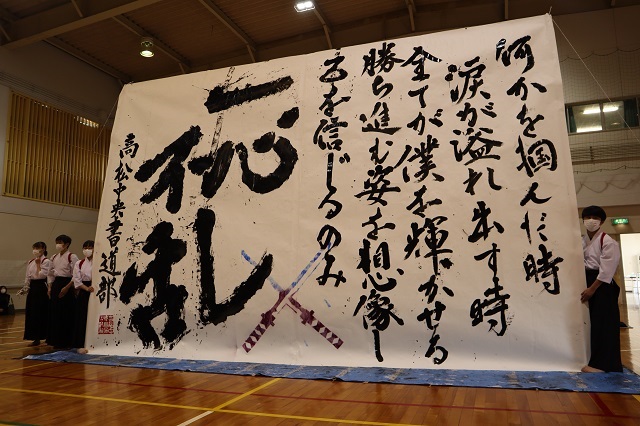 何かを掴んだ時
涙が溢れ出す時
全てが僕を輝かせる
勝ち進む姿を想像し
己を信じるのみ
一心不乱
高松中央書道部